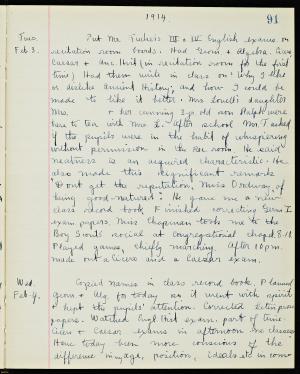 1914.
91
Tues.
Feb. 3.
Put Mr. Fuller's III + IV English exams. on
recitation room boards. Had Geom + Algebra. Gave
Caesar + Anc Hist (in recitation room for the first
time) Had them write in class on "Why I like
or dislike Ancient History", and how I could be
made to like it better. Mrs Lovell's daughter
Mrs. + her cunning 3 yr old son Ralph were
here to tea with Mrs L. After school Mr. F. asked
if the pupils were in the habit of whispering
without permission in the Rec room. He said
neatness is an acquired characteristic. He
also made this significant remark
"Don't get the reputation, Miss Ordway, of
being good-natured". He gave me a new
class record book. Finished correcting Geom I
exam papers. Miss Chapman took me to the
Boy Scouts social at Congregational chapel 8-10
Played games, chiefly marching. After 10 p.m.
made out a Cicero and a Caesar exam.
Wed.
Feb. 4.
Copied names in class record book. Planned
geom + alg. for today so it went with spirit
+ kept the pupils' attention. Corrected Latin prose
papers. Watched Eng. Hist exam. part of time.
Cicero + Caesar exams in afternoon
Have today been more conscious of the
difference in age, position, ideals etc in com-